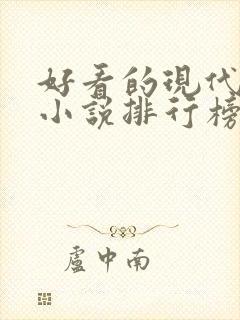 好看的現代
小說排行榜
盧中南